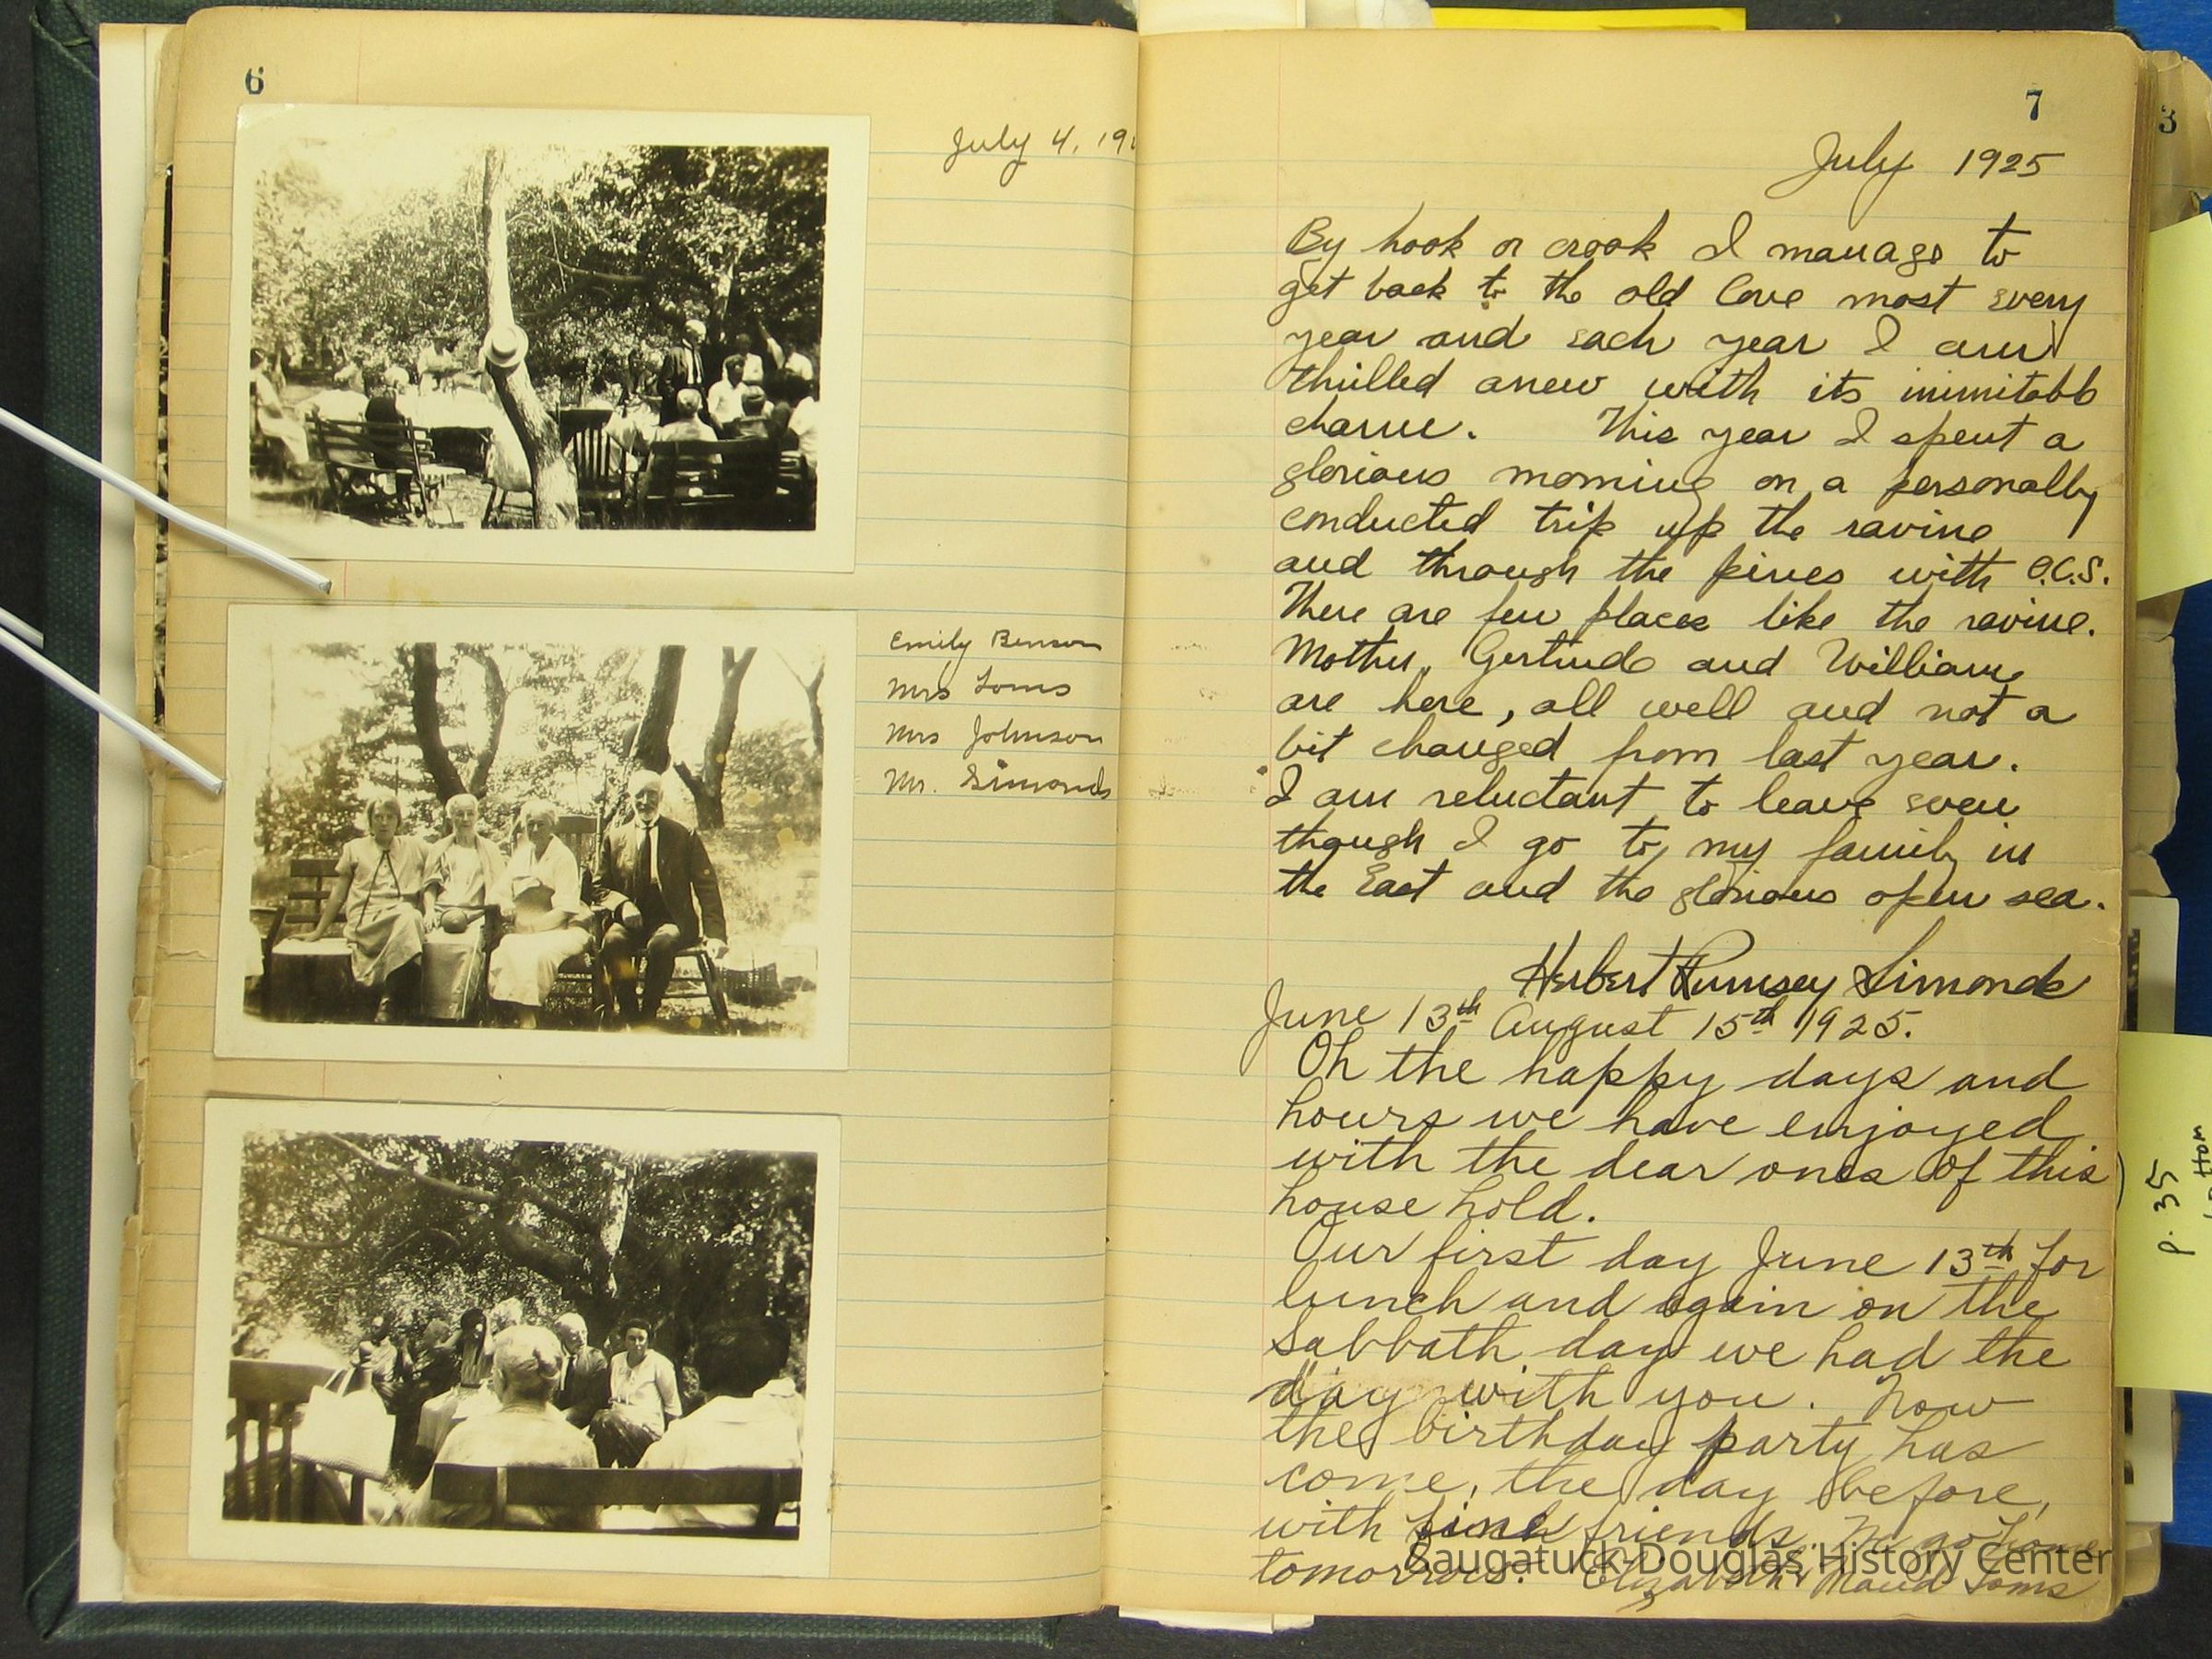 6
July 4, 19
Emily Benson
Mrs Toms
Mrs Johnson
Mr. Simonds
7
3
July 1925
By hook or crook I manage to
get back to the old love most every
year and each year I am
thrilled anew with its inimitable
charm. This year I spent a
glorious morning on a personally
conducted trip up the ravine
and through the pines with O.C.S.
There are few places like the ravine.
Mother, Gertrude and William
are here, all well and not a
bit changed from last year.
I am reluctant to leave even
though I go to my family in
the East and the glorious open sea.
Herbert Rumsey Simonds
June 13th August 15th 1925.
Oh the happy days and
hours we have enjoyed
with the dear ones of this
house hold.
Our first day June 13th for
lunch and again on the
Sabbath day we had the
day with you. Now
the birthday party has
come, the day before,
with fine friends. We go home
tomorrow. Elizabeth Maud Toms
p. 35
Saugatuck-Douglas History Center